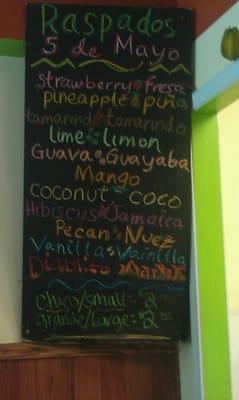 Raspados
5 de Mayo
strawberry fresa
pineapple piña
tamarind tamarindo
lime limon
Guava Guayaba
Mango
coconut - coco
Hibiscus Jamaica
Pecan Nuez
Vanilla Vainilla
Diablito
chico/small = $2
grande/large = $2